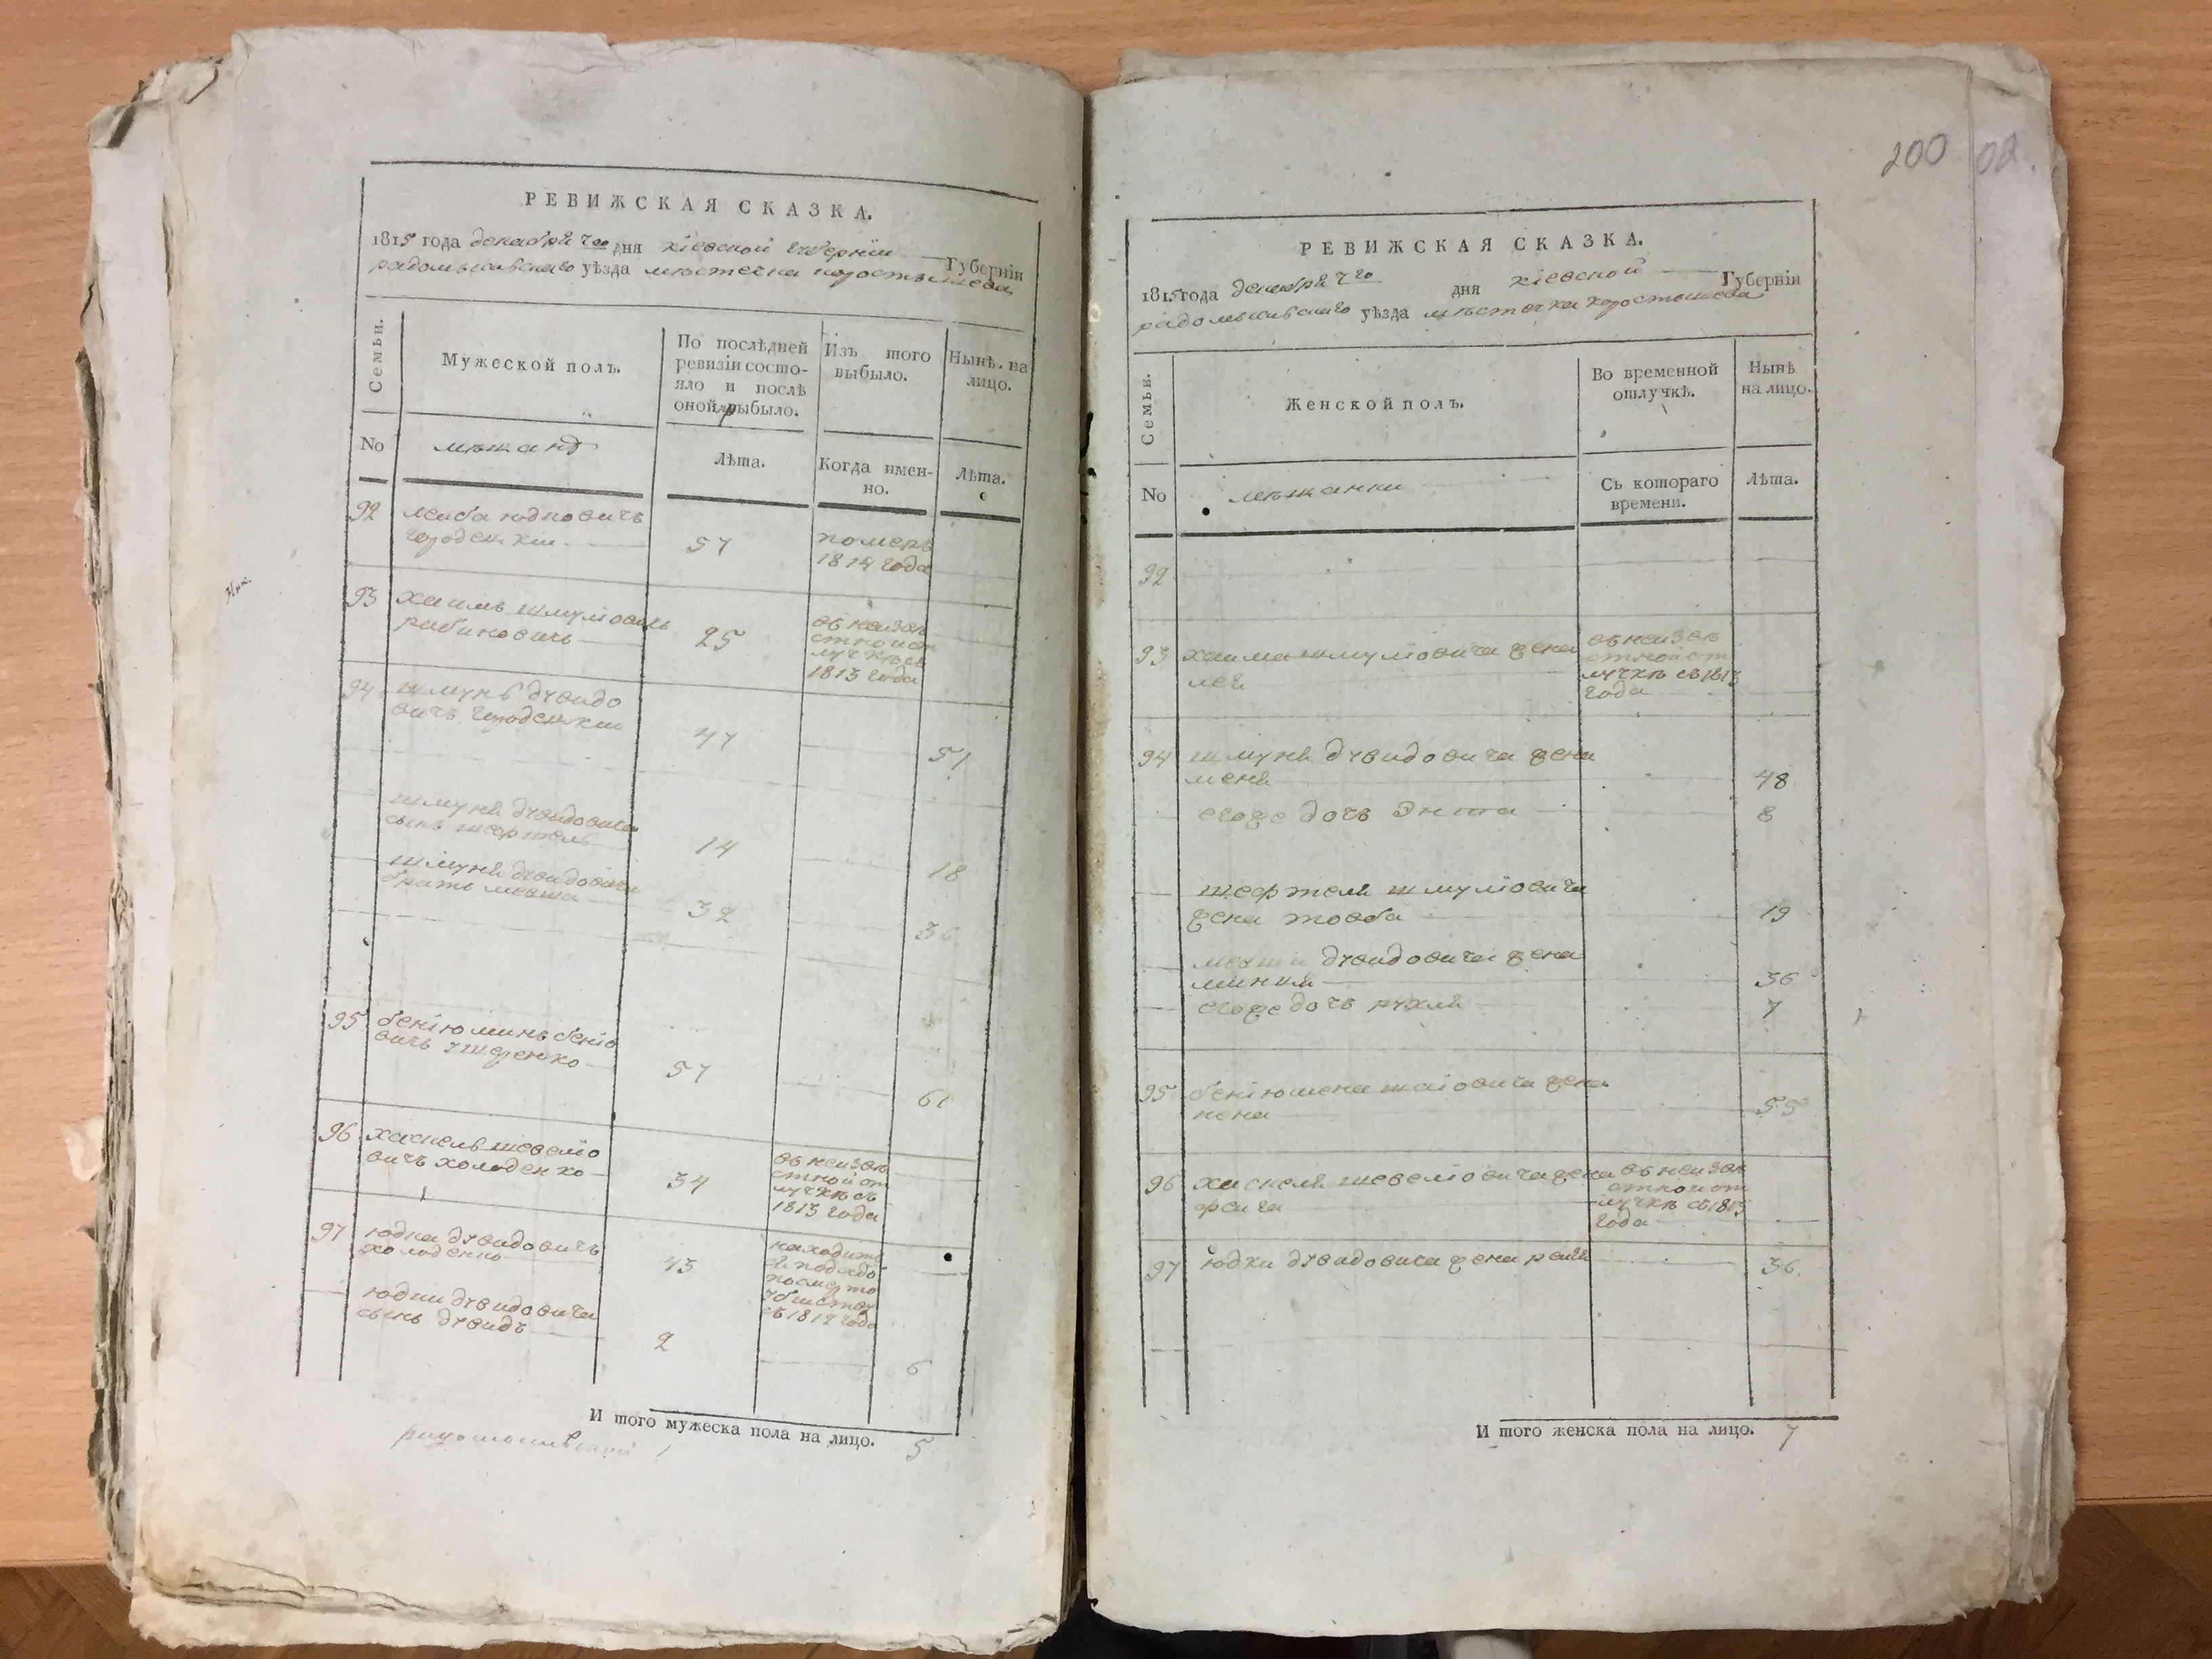 РЕВИЖСКАЯ СКАЗКА.
1815 года декабря 7го дня кіевской губерніи Губерніи
радомысльскаго уѣзда мѣстечка коростышева
Семьи.
Мужеской полъ.
По послѣдней
ревизіи состо-
яло и послѣ
оной прыбыло.
Изъ того
выбыло.
Нынѣ на
лицо.
No
мѣщанѣ
Лѣта.
Когда имен-
но.
Лѣта.
92 лейба юдковичъ
городецкій
57
померъ
1814 года
93 хаимъ шмуліовичъ
рабиновичъ
25
въ неизвѣ
стной от
лучкѣ съ
1813 года
94 шмуль дувидо
вичъ городецкій
47
51
шмуля дувидовича
сынъ шефтель
14
18
шмуля дувидовича
братъ мовша
32
36
95 беніюминъ
57
61
96 хаскель шевеліо
вичъ холоденко
34
въ неизвѣ
стной от
лучкѣ съ
1813 года
97 юдка дувидовичъ
холоденко
43
находит
съ 1812 года
юдки дувидовича
сынъ дувидъ
2
6
И того мужеска пола на лицо. 5
200
РЕВИЖСКАЯ СКАЗКА.
1815 года декабря 7го дня кіевской Губерніи
радомысльскаго уѣзда мѣстечка коростышева
Семьи.
Женской полъ.
Во временной
отлучкѣ.
Нынѣ
на лицо.
No
мѣщанки
Съ котораго
времени.
Лѣта.
92
93 хаима шмуліовича жена
лея
въ неизвѣ
стной от
лучкѣ съ 1813
года
94 шмуля дувидовича жена
меня
48
егоже дочь Энта
8
шефтеля шмуліовича
жена товба
19
мовши дувидовича жена
миня
36
егоже дочь рухля
7
95 беніюмена шаіовича жена
нена
55
96 хаскеля шевеліовича жена
фейга
въ неизвѣ
стной от
лучкѣ съ 1813
года
97 юдки дувидовича жена рейзя
36
И того женска пола на лицо. 7